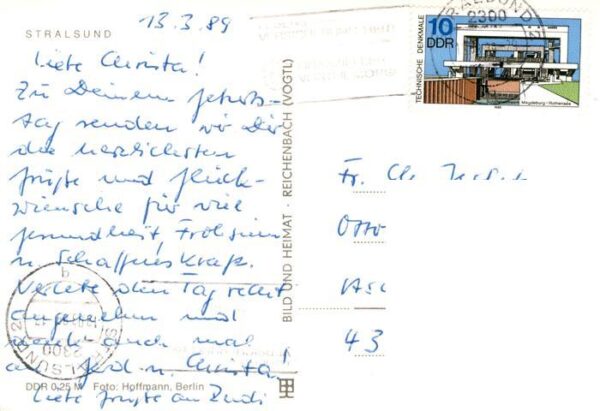 STRALSUND
13.3.89
Liebe Christa!
Zu Deinem Geburts-
tag senden wir Dir
die herzlichsten
Grüße und Glück-
wünsche für viel
Gesundheit, Frohsinn
u. Schaffenskraft.
Verlebe den Tag recht
angenehm und
denk auch mal
an u. Christa!
Liebe Grüße an Rudi
DDR 0,25 M Foto: Hoffmann, Berlin
BILD UND HEIMAT · REICHENBACH (VOGTL)
STRALSUND 2
2300
10
DDR
TECHNISCHE DENKMALE
Magdeburg-Rothensee
Fr. Ch.
Otto
43
STRALSUND 2
2300